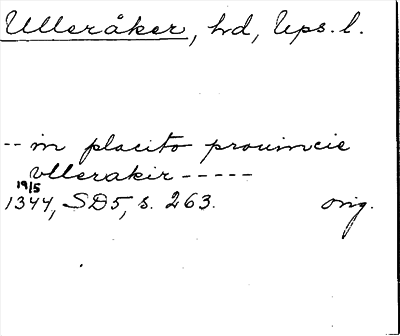 Ulleråker, hd, Ups. l.
-- in placito prouincie
vllerakir -----
19/5
1344, SD5, s. 263. orig.